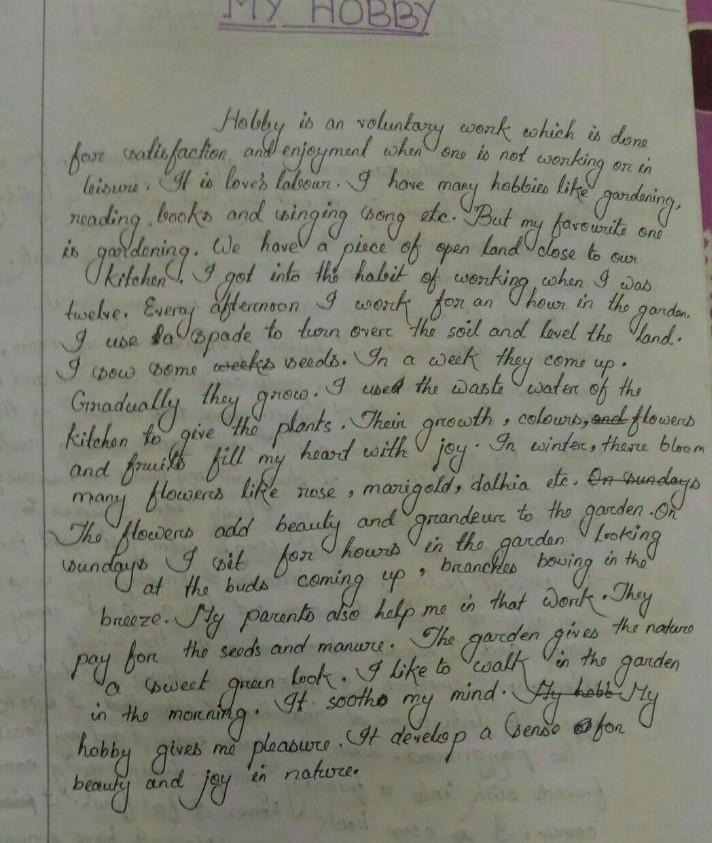 MY HOBBY
Hobby is an voluntary work which is done
for satisfaction and enjoyment when one is not working or in
leisure. It is love's labour. I have many hobbies like gardening,
reading books and singing song etc. But my favourite one
is gardening. We have a piece of open land close to our
kitchen. I got into the habit of working when I was
twelve. Everay afternoon I work for an hour in the garden.
I use a spade to turn over the soil and level the land.
I sow some weeks seeds. In a week they come up.
Gradually they grow. I used the waste water of the
kitchen to give the plants. Their growth, colours, and flowers
and fruits fill my heart with joy. In winter, there bloom
many flowers like rose, marigold, dalhia etc. On sundays
The flowers add beauty and grandeur to the garden. On
sundays I sit for hours in the garden looking
at the buds coming up, branches bowing in the
breeze. My parents also help me in that work. They
pay for the seeds and manure. The garden gives the nature
a sweet green look. I like to walk in the garden
in the morning. It sooths my mind. My hobb My
hobby gives me pleasure. It develop a sense for
beauty and joy in nature.